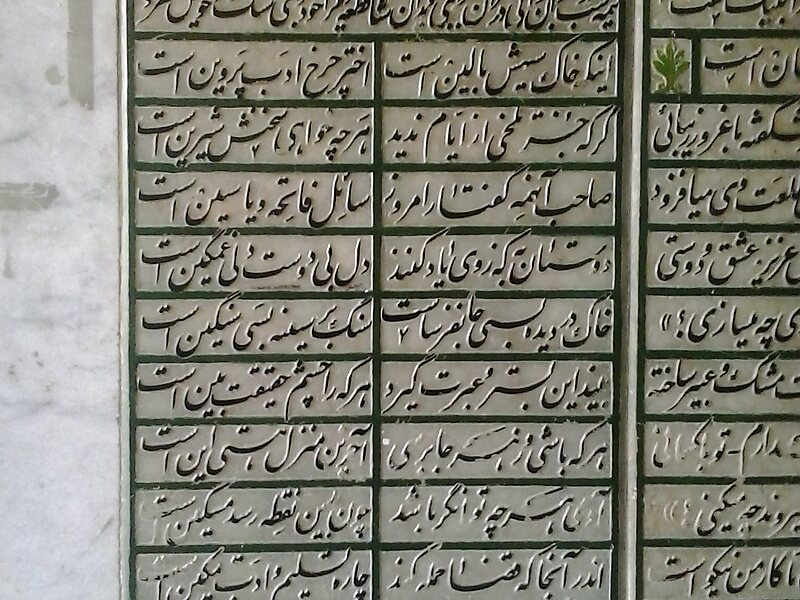 است
شکفته با غرور زیبائی
طلعت وی میافزود
عزیز عشق و دوستی
چه میسازی؟»
مشک و عبیر ساخته
چه میکنی؟»
کار من نیکو است
اینکه خاک سیهش بالین است اختر چرخ ادب پروین است
گرچه جز تلخی از ایام ندید هر چه خواهی سخنش شیرین است
صاحب آنهمه گفتار امروز سائل فاتحه و یاسین است
دوستان به که ز وی یاد کنند دل بی دوست دلی غمگین است
خاک در دیده بسی جانفرساست سنگ بر سینه بسی سنگین است
بیند این بستر و عبرت گیرد هر که را چشم حقیقت بین است
هر که باشی و ز هر جا برسی آخرین منزل هستی این است
آدمی هر چه توانگر باشد چون بدین نقطه رسد مسکین است
اندر آنجا که قضا حمله کند چاره تسلیم و ادب تمکین است